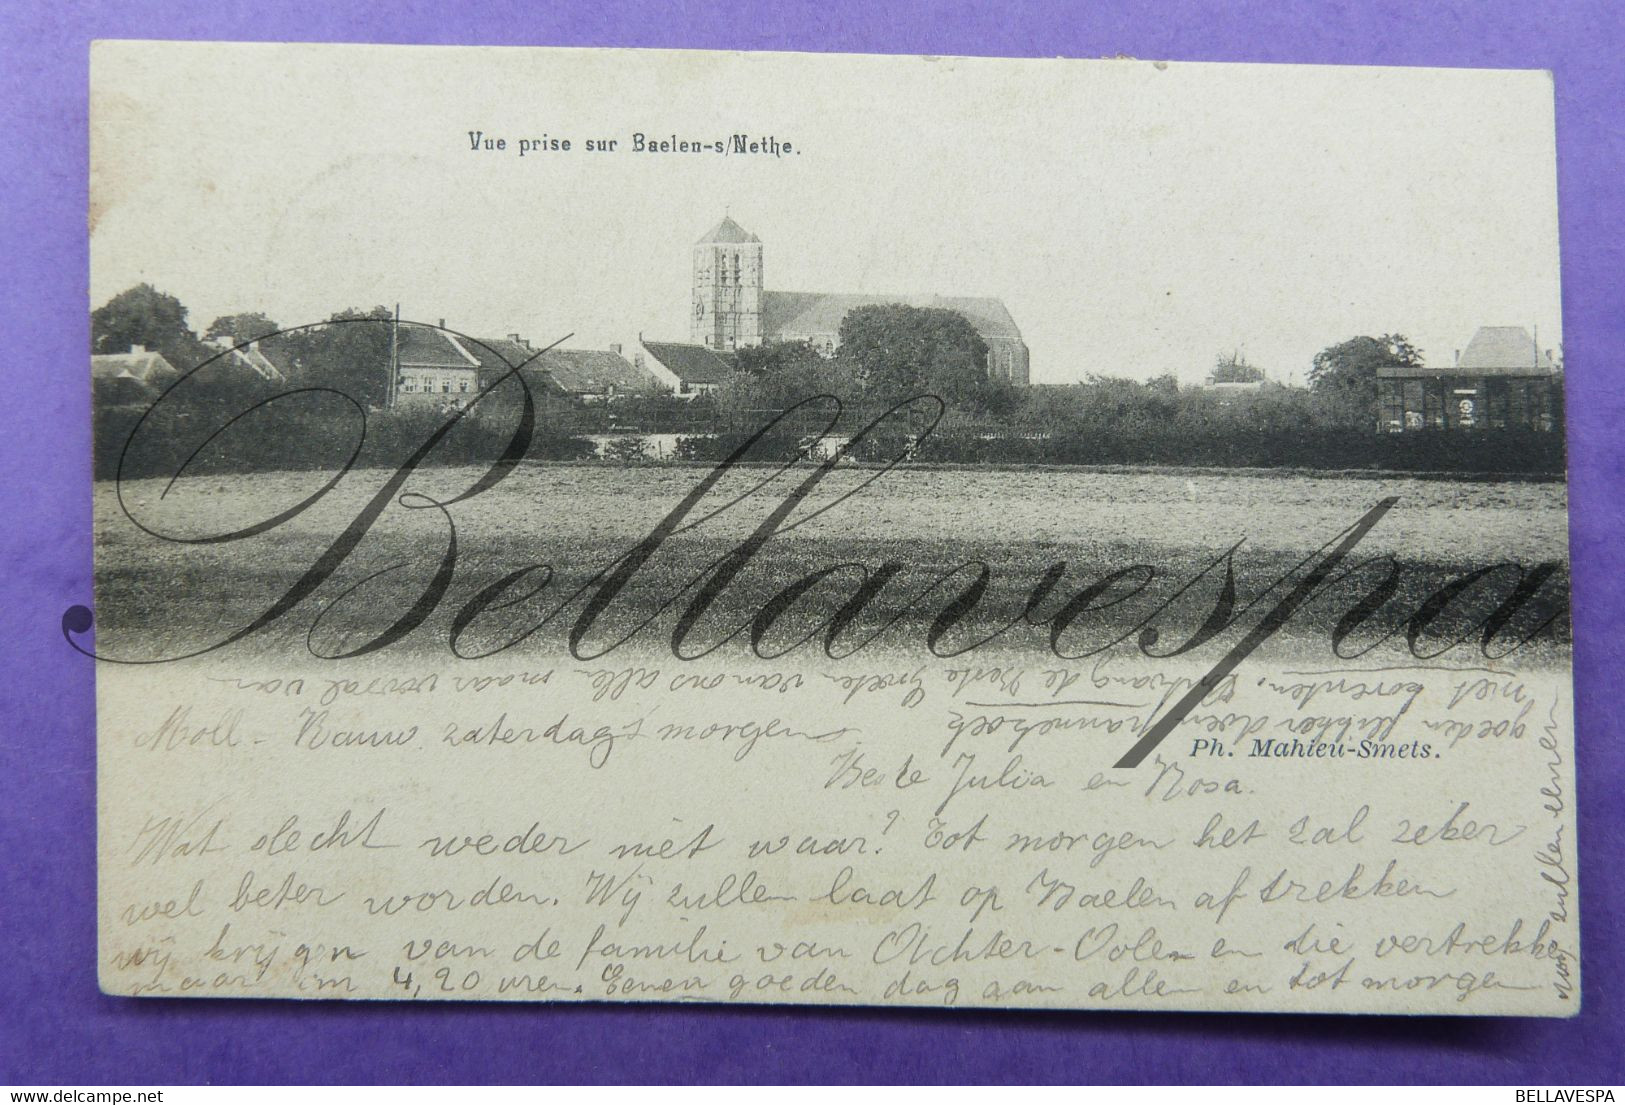 Vue prise sur Baelen-s/Nethe.
Bellavespa
niet Ontvang de Beste Groeten van ons allen maar vooral van
goeden
Moll - Rauw zaterdag's morgen
Ph. Mahieu-Smets.
Beste Julia en Rosa.
Wat slecht weder niet waar? Tot morgen het zal zeker
wel beter worden. Wij zullen laat op Baelen aftrekken
wij krijgen van de familie van Achter-Oolen en die vertrekken
maar om 4,20 uren. Eenen goeden dag aan allen en tot morgen
wij zullen eenen
BELLAVESPA